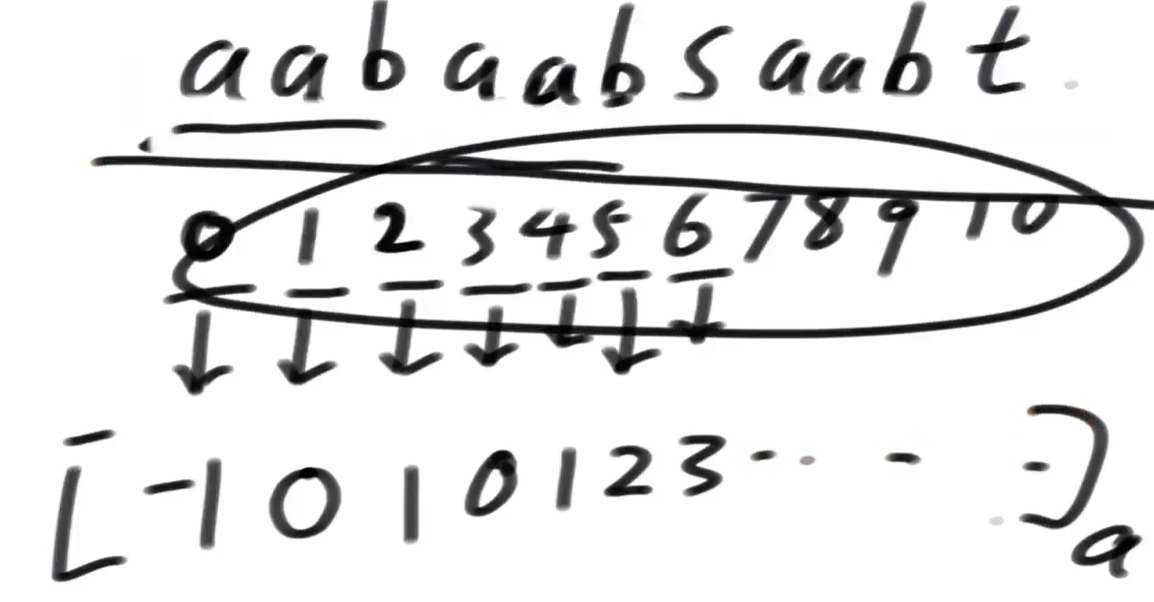 aabaabsaabt
0 1 2 3 4 5 6 7 8 9 10
[-1 0 1 0 1 2 3 ... - -]
a